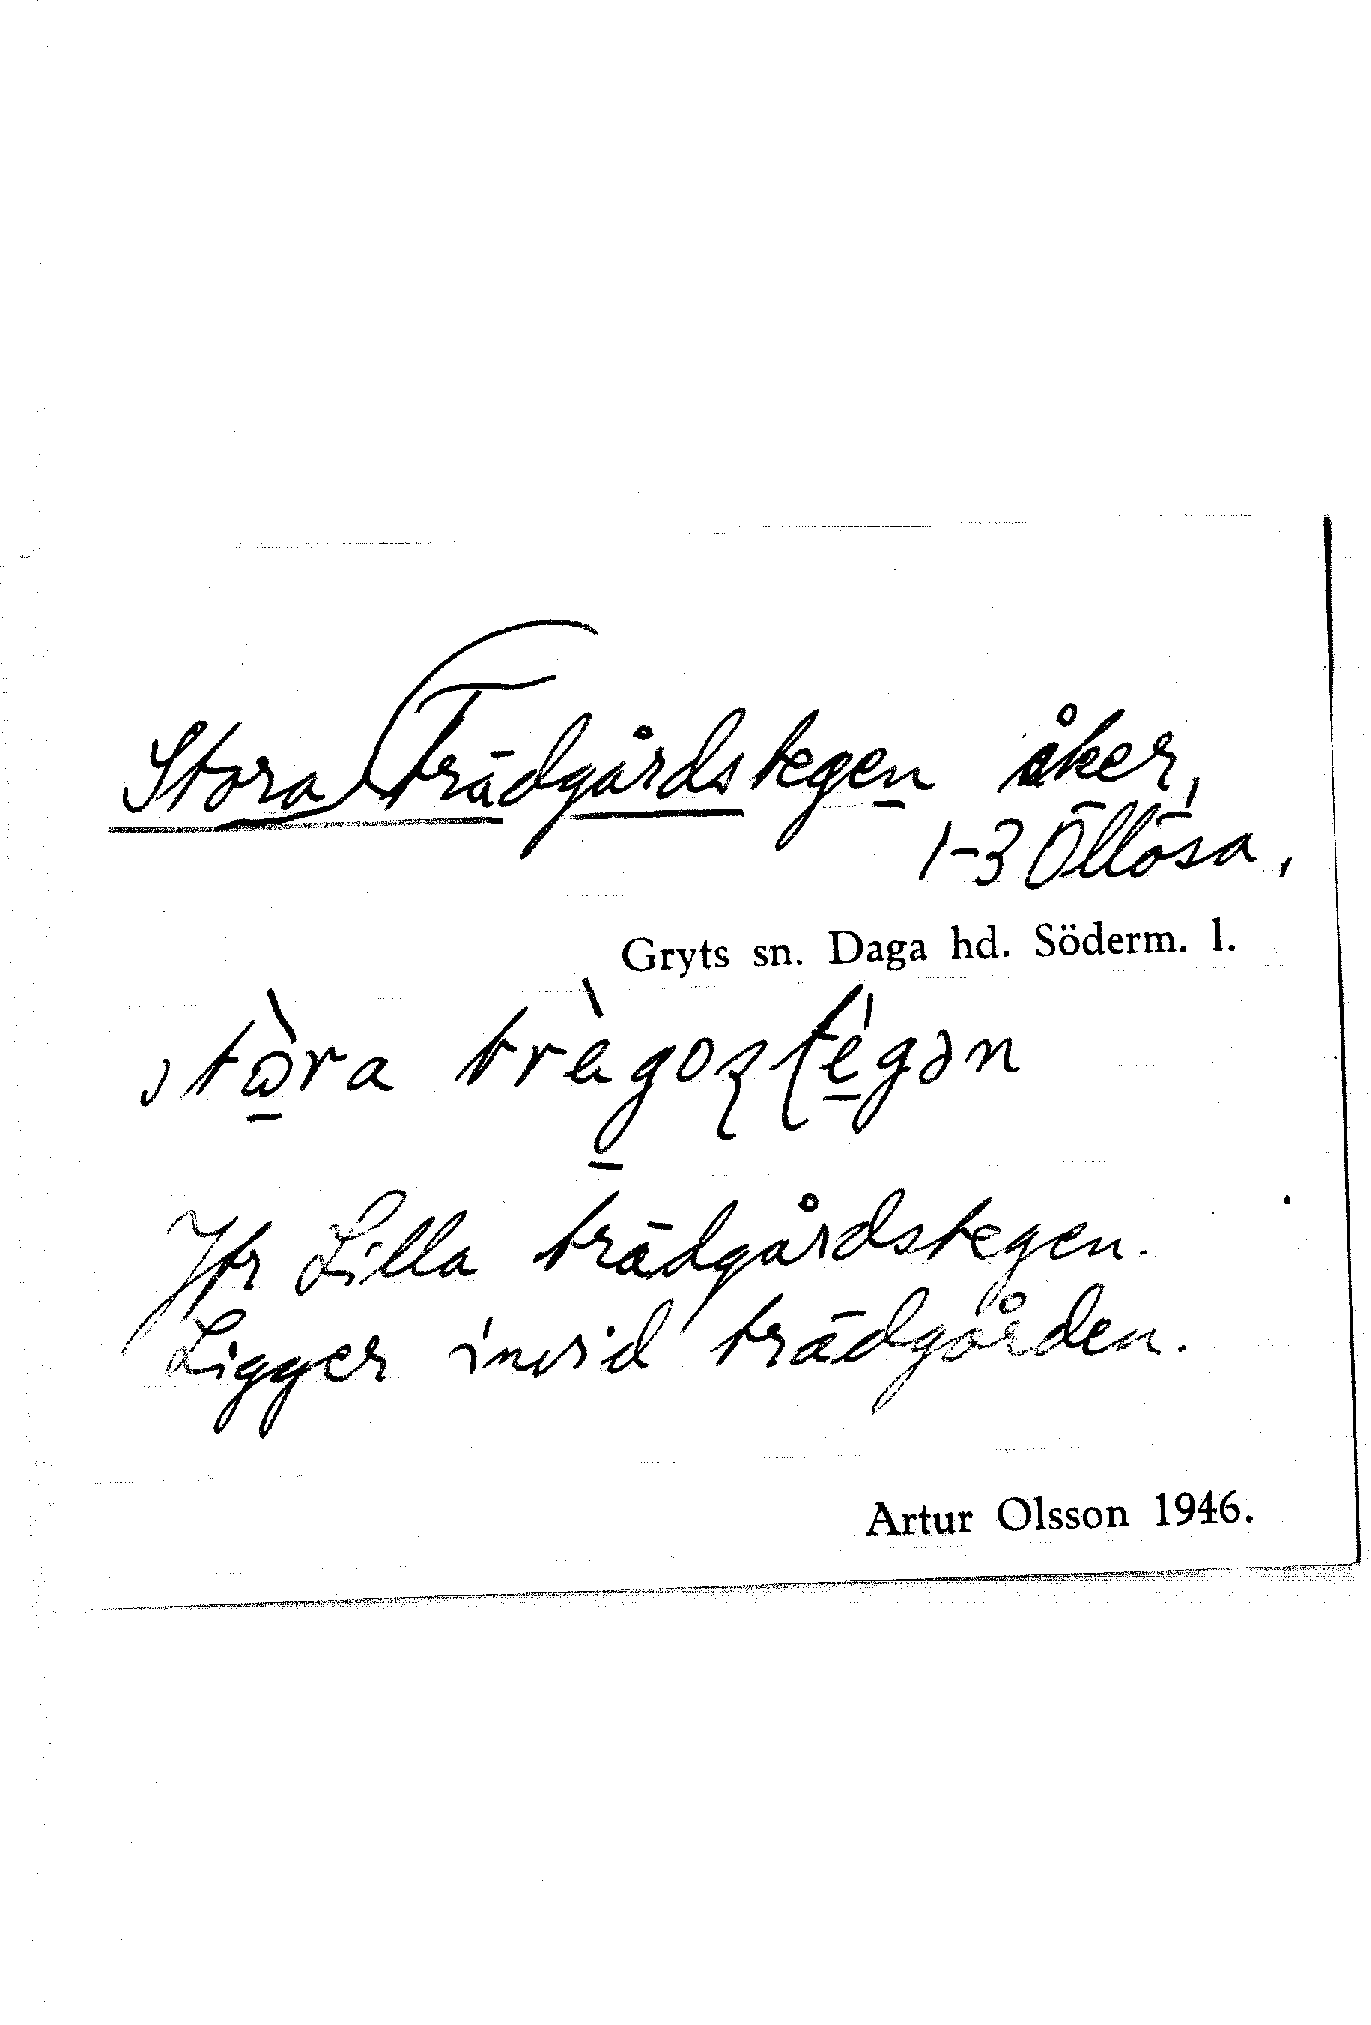 Stora Trädgårdstegen åker,
1-3 Öllösa,
Gryts sn. Daga hd. Söderm. l.
Jfr Lilla trädgårdstegen.
Ligger invid trädgården.
Artur Olsson 1946.